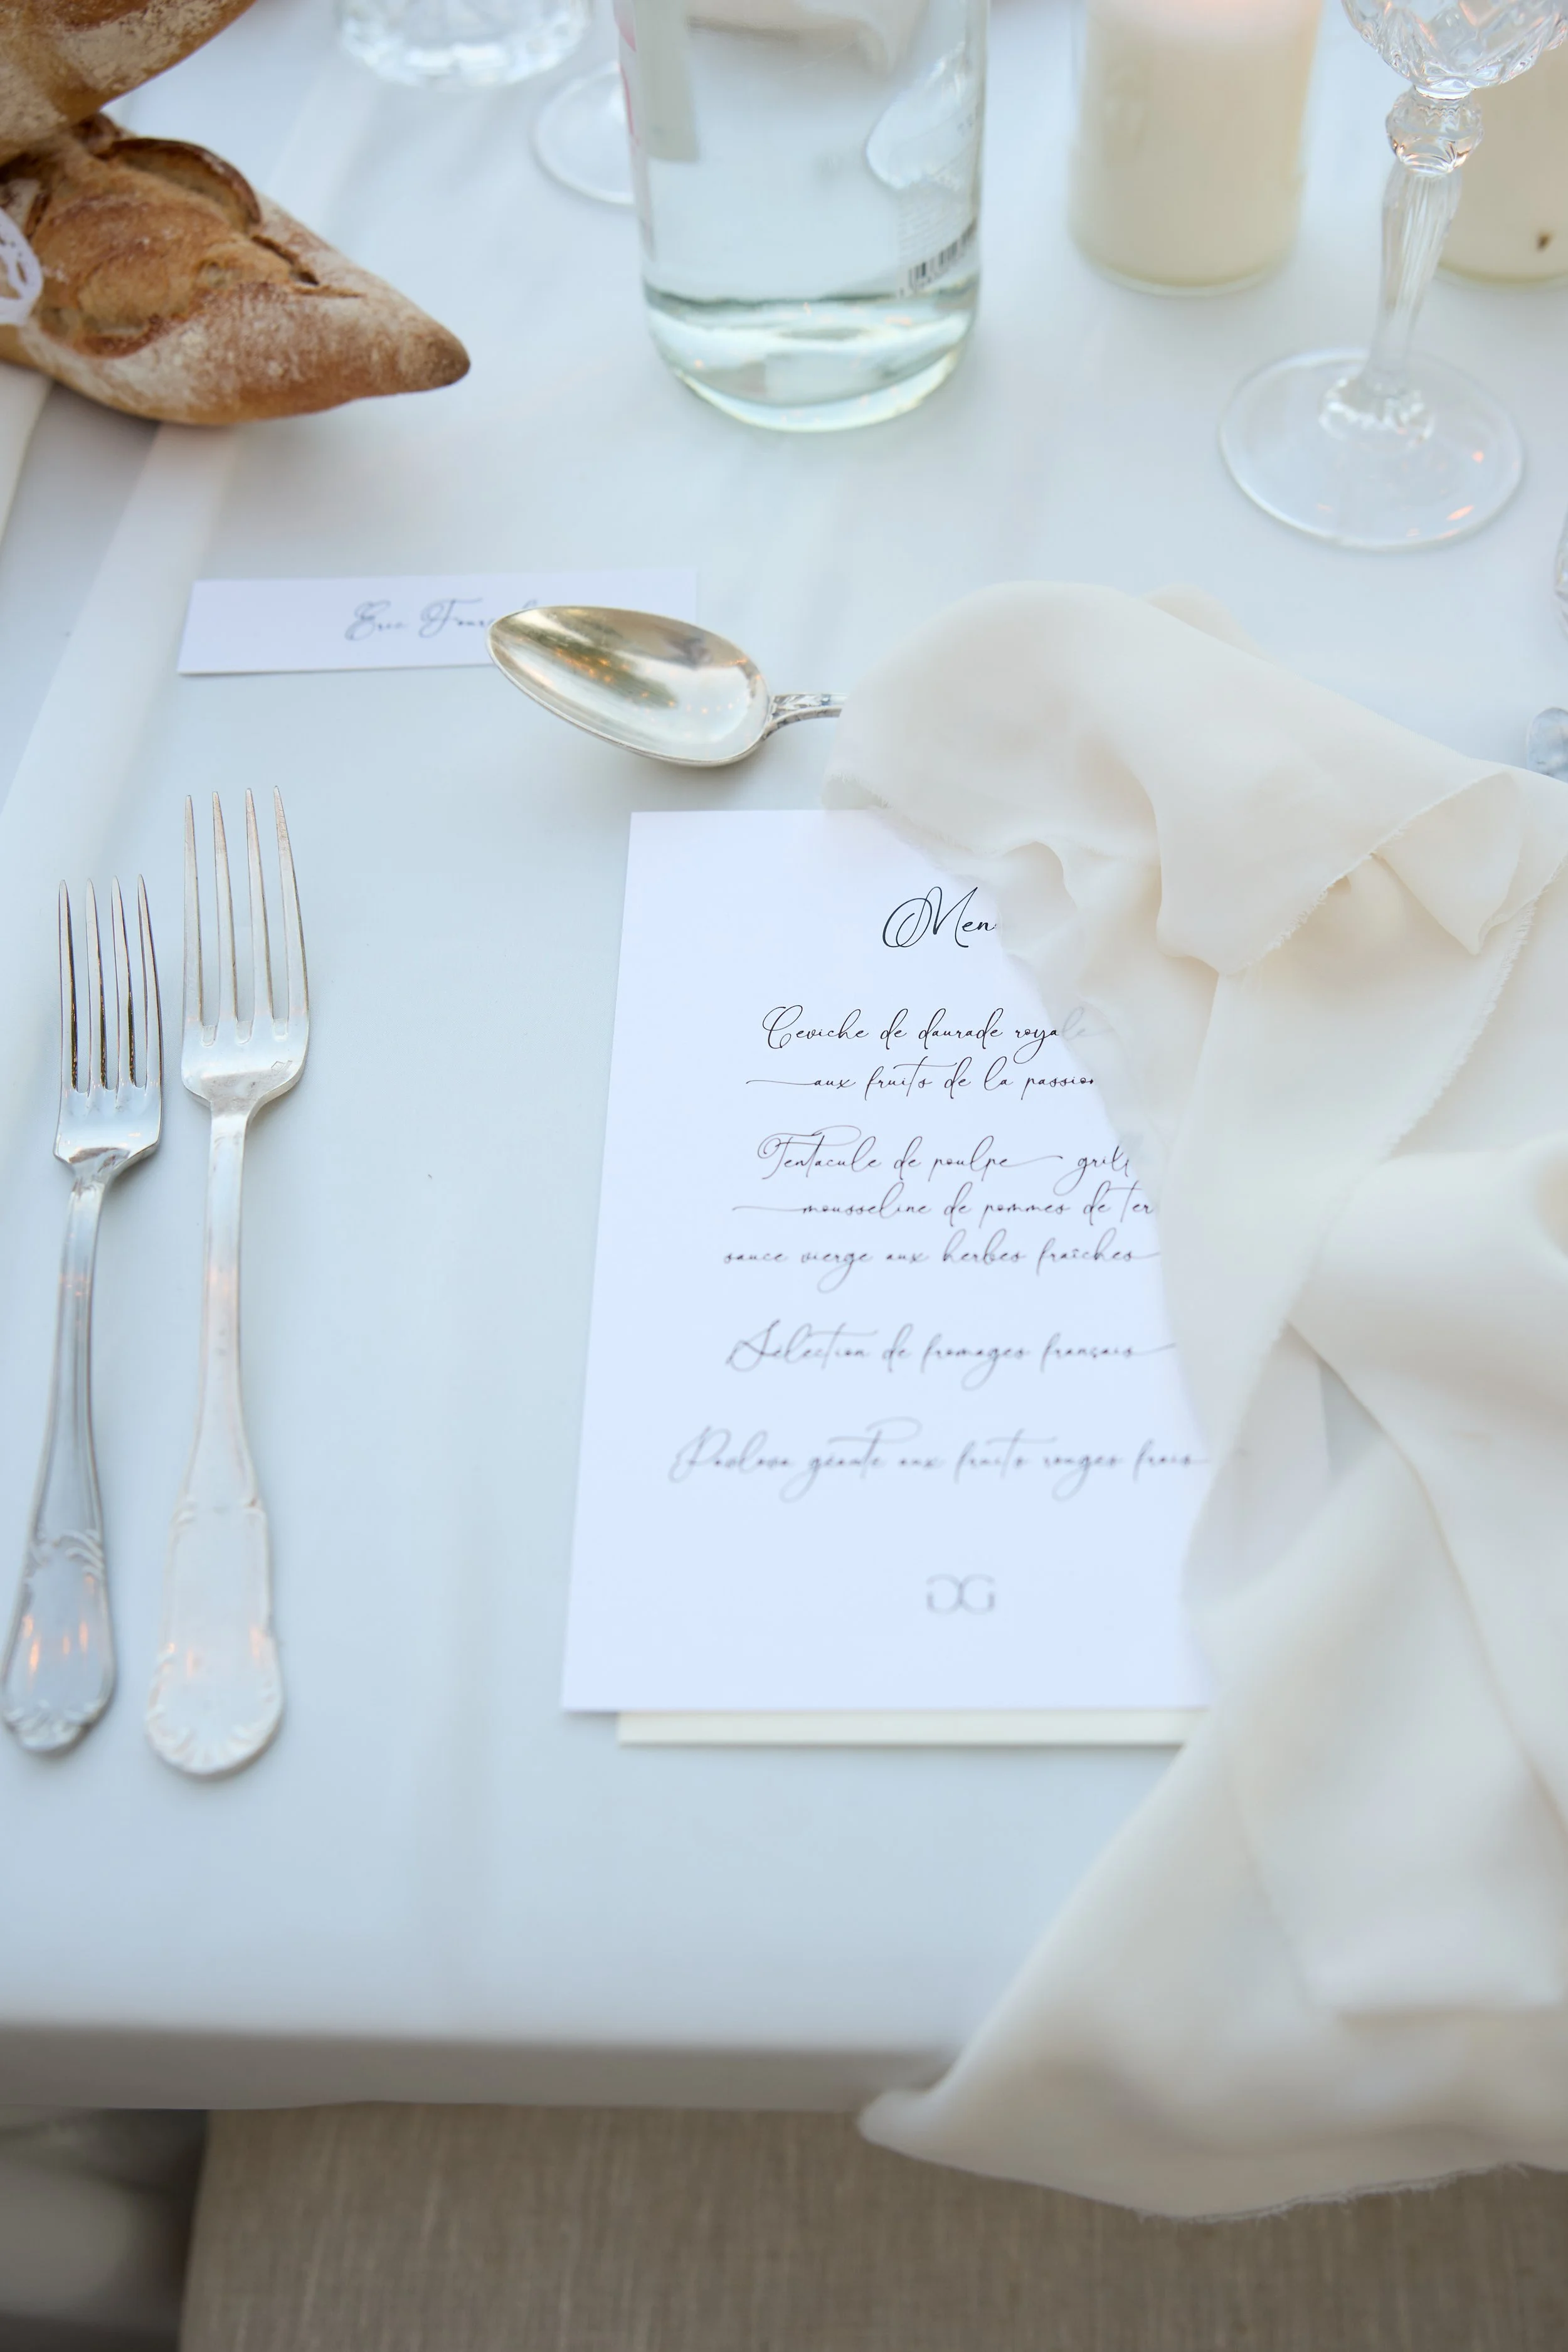 Eric
Men
Ceviche de daurade royale
aux fruits de la passion
Tentacule de poulpe grill
mousseline de pommes de ter
sauce vierge aux herbes fraîches
Sélection de fromages français
Pavlova géante aux fruits rouges frais
GG